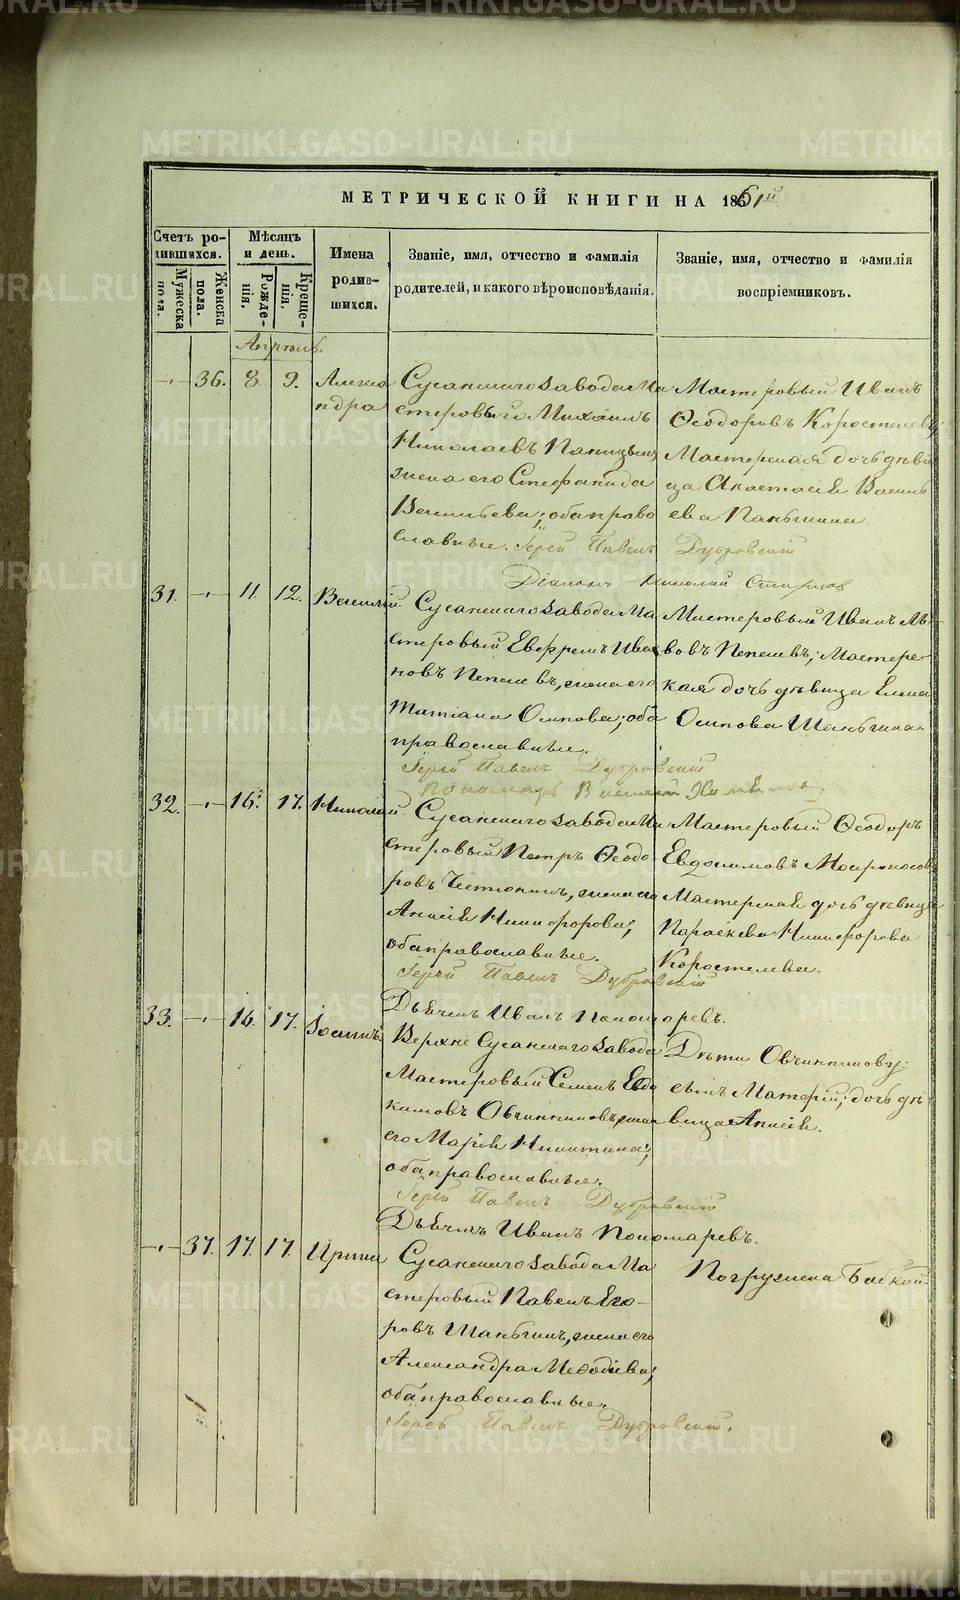 METRIKI.GASO-URAL.RU
МЕТРИЧЕСКОЙ КНИГИ НА 1861й
Счетъ родившихся.
Мужеска пола.
Женска пола.
Мѣсяцъ и день.
Рожденія.
Крещенія.
Имена родившихся.
Званіе, имя, отчество и фамилія родителей, и какого вѣроисповѣданія.
Званіе, имя, отчество и фамилія воспріемниковъ.
Апрѣль.
36. 8. 9. Александра
Сусанскаго завода Ма
стероваго Михаилъ
Николаевъ
жена его Стефанида
Васильева; оба право
славные. Іерей Павелъ Дубровскій
Діаконъ Николай
Мастеровый Иванъ
Ѳеодоровъ Коростелевъ;
Мастерская дочь дѣви
ца Анастасія Василь
ева Паньшина.
31. 11. 12. Василій.
Сусанскаго завода Ма
стеровый Ефремъ Ива
новъ Пепелевъ, жена его
Татіана Осипова; оба
православные.
Іерей Павелъ Дубровскій
Мастеровый Иванъ Ль
вовъ Пепелевъ; Мастерс
кая дочь дѣвица Елена
Осипова Шаньгина.
32. 16. 17. Николай
Сусанскаго завода Ма
стеровый Петръ Ѳеодо
ровъ Чистюнинъ, жена его
Анисія Никифорова;
оба православные.
Іерей Павелъ Дубровскій
Дьячекъ Иванъ Пономаревъ.
Мастеровый Ѳеодоръ
Евдокимовъ Мокроносовъ
Мастерская дочь дѣвица
Параскева Никифорова
Коростелева.
33. 16. 17. Іоаннъ.
Верхне Сусанскаго завода
Мастеровый Семенъ Евдо
кимовъ Овчинниковъ, жена
его Марія Никитина;
оба православные.
Іерей Павелъ Дубровскій
Дьячекъ Иванъ Пономаревъ.
Дѣти Овчинникову:
сынъ Матѳій; дочь дѣ
вица Анисія.
37. 17. 17. Ирина
Сусанскаго завода Ма
стеровый Павелъ Его
ровъ Шаньгинъ, жена его
Александра Меѳодіева;
оба православные.
Іерей Павелъ Дубровскій.
Погружена Бабкой